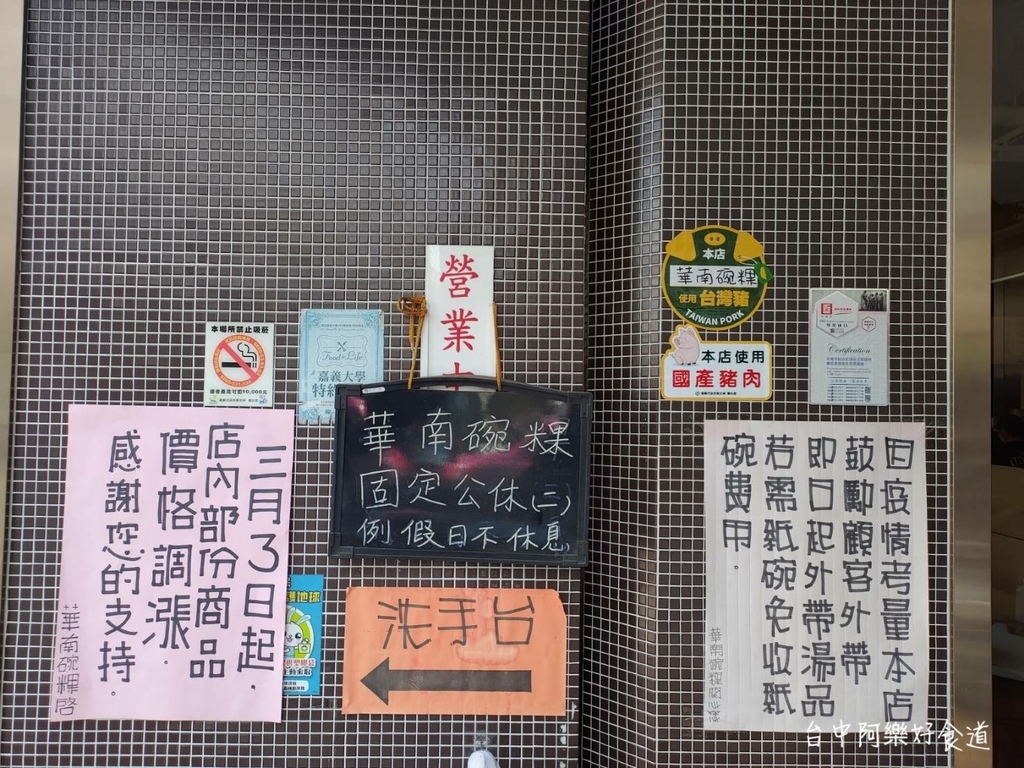 營業
本場所禁止吸菸
違者最高可罰10,000元
Food for Life
嘉義大學
本店
華南碗粿
使用台灣豬
TAIWAN PORK
本店使用
國產豬肉
Certification
華南碗粿
固定公休(二)
例假日不休息
三月3日起,
店內部份商品
價格調漲.
感謝您的支持.
華南碗粿啓
護地球
洗手台
因疫情考量本店
鼓勵顧客外帶
即日起外帶湯品
若需紙碗免收紙
碗費用.
台中阿樂好食道